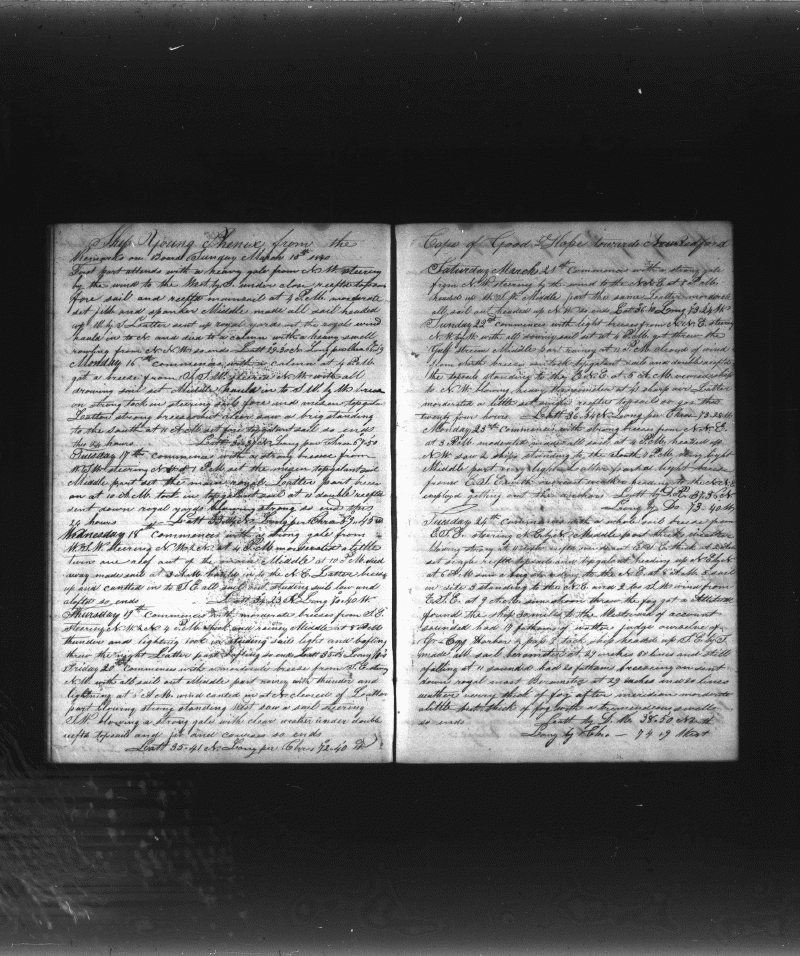 Ship Young Phenix from the
Remarks on Board Sunday March 15th 1840
First part attends with a heavy gale from N.W. steering
by the wind to the West by S. under close reefte topsails
fore sail and reefte mainsail at 4 P.M. moderate
set jibb and spanker Middle made all sail headed
up W by S Latter sent up royal yards set the royal wind
hauld in to N and died to a calum with a heavy swell
rowling from N.N.W. so ends Latt 29.30 N Long per
Monday 16th commences with a calum at 4 P.M.
got a breese from S.S.W. steered N.W. with all
drawing sail set Middle hauls in to S.W. by W. breese
on strong took in steering sails fore and misen topgalant
Latter strong breese and clear saw a brig standing
to the South at 11 A.M. set fore topgalant sail so ends
the 24 hours Latt N Long per Chron 67.50
Tuesday 17th commences with a strong breese from
W.S.W. steering N.W. at 1 P.M. set the misen topgalant sail
Middle part set the main royal Latter part breese
on at 10 A.M. took in topgalant sail at 11 double reefte
sent down royal yards blowing strong so ends the
24 hours Latt 33 N Long per Chron 69.45
Wednesday 18th commences with a strong gale from
W.S.W. Steering N.W. at 4 P.M. moderated a little
turn one reef out of the main Middle at 10 P.M. died
away made sail at 3 A.M. hauld in to the N.E. Latter breese
up and canted in to S.E. all sail set studing sail low and
alofte so ends Latt 34.23 N Long 70.40 W
Thursday 19th commences with moderate breeses from S.E.
Steering N.W. at 4 P.M. thick and rainy Middle at 8 P.M.
thunder and lightning took in studing sail light and bafling
threw the night Latter part bafling so ends Latt 35 N Long
Friday 20th commences with a moderate breese from S.E. steering
N.W. with all sail set Middle part rainy with thunder and
lightning at 1 A.M. wind canted in at N cleared of Latter
part blowing strong standing West saw a sail steering
S.W. blowing a strong gale with clear weather under double
reefte topsails and jib and courses so ends
Latt 35.41 N Long per Chro 72.40 W
Cape of Good Hope towards New Bedford
Saturday March 21st commences with a strong gale
from N.W. steering by the wind to the N at 8 P.M.
headed up W.S.W. Middle part the same Latter moderate
all sail set headed up N.W. so ends Latt 35 Long 73.24 W
Sunday 22nd commences with light breeses from N.N.E. steering
N.W. by W. with all drawing sail set at 4 P.M. got threw the
Gulf Stream Middle part rainy at 10 P.M. cleared of wind
from North breese on took in topgalant sails and reefte
the topsails standing to the E.N.E. at 3 A.M. wore ship
to N.W. blowing heavy therometer at 43 sharp air Latter
moderated a little set single reefte topsails so goes the
twenty four hours Latt 36.34 N Long per Chron 73.24 W
Monday 23rd commences with strong breeses from N.N.E.
at 3 P.M. moderated made all sail at 4 P.M. headed up
N.W. saw 2 ships standing to the South 9 P.M. very light
Middle part very light Latter part a light breese
from E.S.E. with pleasant weather heading to the N.N.E.
employed getting out the anchors Latt by D.R. 37.35 N
Long by Do 73.40 W
Tuesday 24th commences with a whole sail breese from
E.S.E. steering N.E. by N. Middle part thick weather
blowing strong at 11 night reefte wind at E.S.E. thick at 2 A.M.
set single reefte topsails and topgalant heading up N.E. by N.
at 6 A.M. saw a brig standing to the N.E. at 8 A.M. 5 sail
in site 3 standing to the N.E. and 2 to S.W. wind from
E.S.E. at 9 A.M. sun shone threw the fog got a Altitude
found the ship 30 mile to the Westward of account
sounded had 19 fathoms of water judge ourselves of
Gr Egg Harbor 9 past 9 tack ship headed up S.E. by S.
made all sail barometer at 29 inches 51 lines and still
falling at 11 sounded had 20 fathoms breeseing on sent
down royal mast Barometer at 29 inches and 50 lines
weather very thick of fog after meridian moderate
a little but thick of fog with a tremendous swell
so ends Latt by D.R. 38.50 North
Long by Chro — 74.19 West